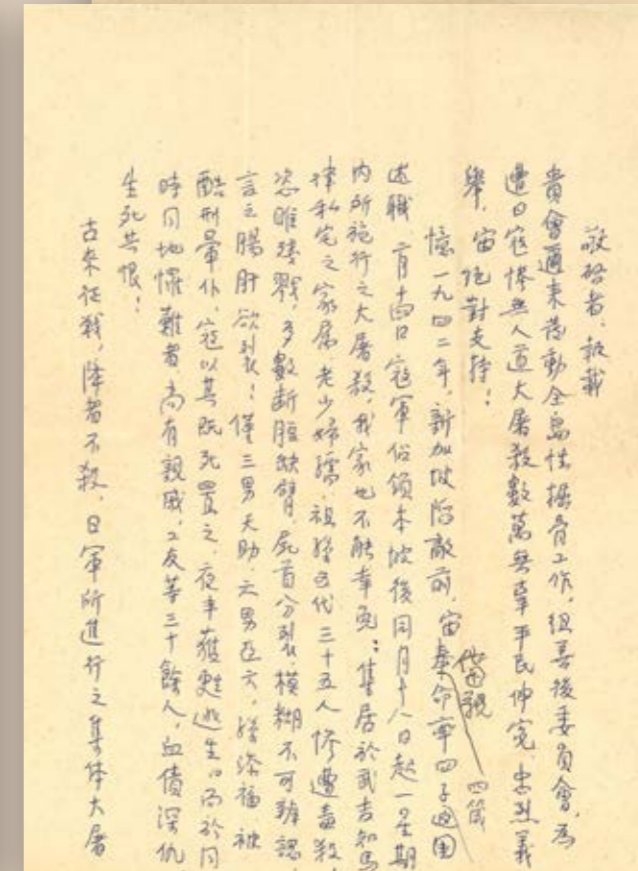 敬啓者、報載
貴會邇來發動全島性掘骨工作，組善後委員會，為
遭日寇慘無人道大屠殺數萬無辜平民伸冤，忠烈義
舉，宙絕對支持！
憶一九四二年，新加坡陷敵前，宙奉命率四子返國
備視 四儀
述職，二月十四日寇軍佔領本坡後同月十八日起一星期
內所施行之大屠殺，我家也不能幸免：集居於武吉知馬
律私宅之家屬老少婦孺，祖孫五代三十五人慘遭毒殺，
恣睢殘戮，多數斷脰缺臂，屍首分裂，模糊不可辨認，
言之腸肝欲裂！僅三男天助、六男亞六，孫添福，被
酷刑暈仆，寇以其既死置之，夜半獲甦逃生。而於同
時同地罹難者，尚有親戚，工友等三十餘人，血債深仇，
生死共恨！
古來征戰，降者不殺，日軍所進行之集体大屠